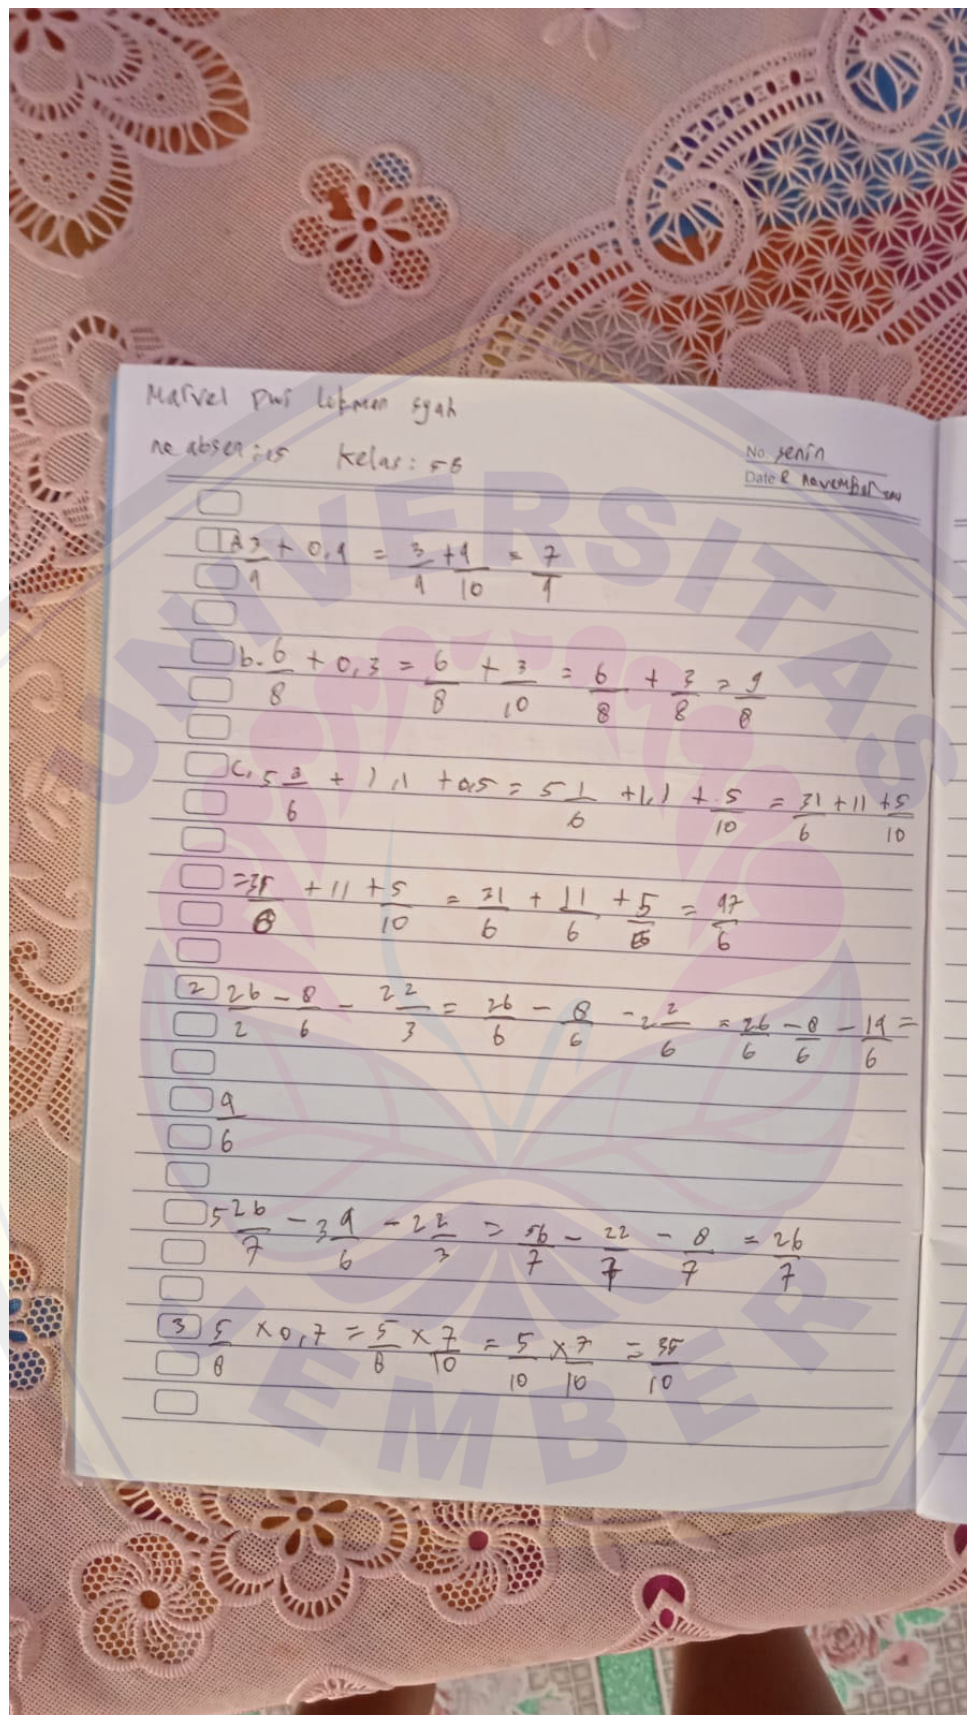 Marvel Dwi Lokman syah
no absen : 15 Kelas : 5B
No. senin
Date 8 november
3/4 + 0,4 = 3/4 + 4/10 = 7/4
b. 6/8 + 0,3 = 6/8 + 3/10 = 6/8 + 3/8 = 9/8
c. 5 3/6 + 1,1 + 0,5 = 5 1/6 + 1,1 + 5/10 = 31/6 + 11 + 5/10
= 31/6 + 11 + 5/10 = 31/6 + 11/6 + 5/6 = 47/6
2 26/2 - 8/6 - 2 2/3 = 26/6 - 8/6 - 2 2/6 = 26/6 - 8/6 - 14/6 =
4/6
5 26/7 - 3 4/6 - 2 2/3 = 56/7 - 22/7 - 8/7 = 26/7
3 5/8 × 0,7 = 5/8 × 7/10 = 5/10 × 7/10 = 35/10
UNIVERSITAS JEMBER